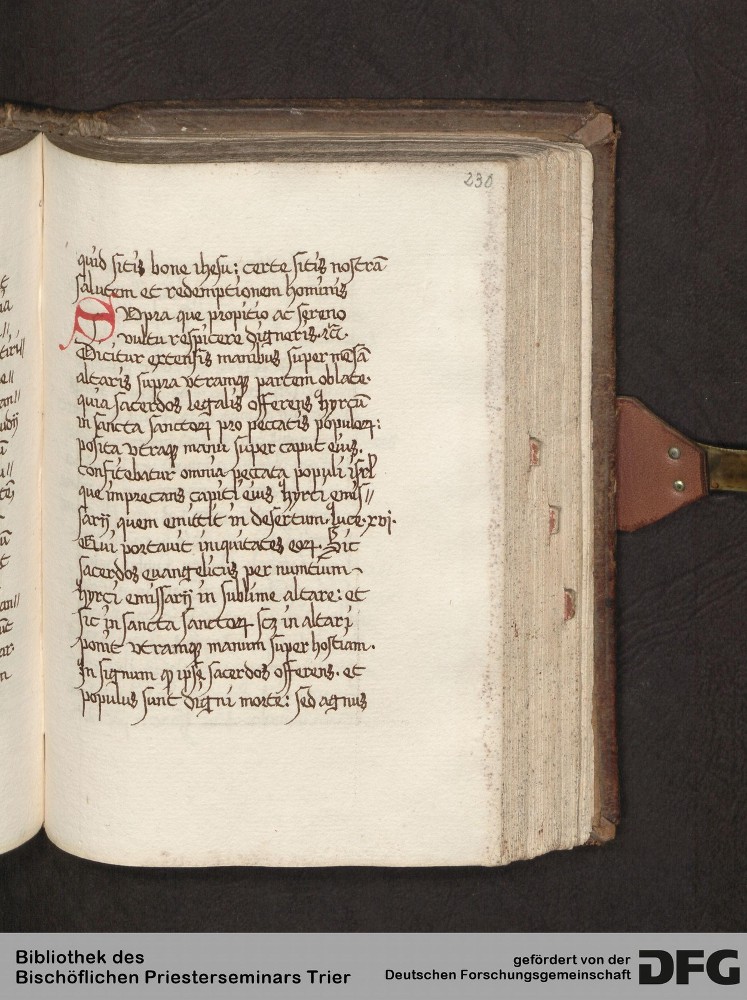 230
quid sitis bone ihesu; certe sitis nostrā
salutem et redemptionem hominis
Supra que propitio ac sereno
vultu respicere digneris. rc̄.
Dicitur extensis manibus super mesā
altaris supra vtramqꝫ partem oblate.
quia sacerdos legalis offerens hyrcū
in sancta sanctoꝝ pro peccatis populoꝝ:
posita vtraqꝫ manu super caput eius.
confitebatur omnia peccata populi isrl̄
que imprecans capiti eius hyrci emis//
sarij quem emittit in desertum. luce. xvj.
Qui portauit iniquitates eoꝝ. Sic
sacerdos euangelicus per nuntium
hyrci emissarij in sublime altare: et
sic in sancta sanctoꝝ scꝫ in altari
ponit vtramqꝫ manum super hostiam.
In signum ꝙ ipse sacerdos offerens. et
populus sunt digni morte: sed agnus
Bibliothek des
Bischöflichen Priesterseminars Trier
gefördert von der
Deutschen Forschungsgemeinschaft
DFG